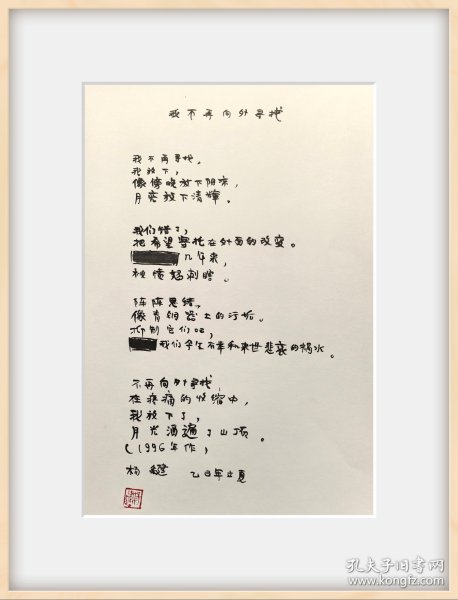 我不再向外寻找
我不再寻找，
我放下，
像傍晚放下阴凉，
月亮放下清辉。
我们错了，
把希望寄托在外面的改变。
几年来，
被愤怒刺瞎。
阵阵思绪，
像青铜器上的污垢。
抑制它们吧，
我们今生不幸和来世悲哀的祸水。
不再向外寻找，
在疼痛的收缩中，
我放下了，
月光洒遍了山顶。
（1996年作）
杨键 乙巳年立夏
孔夫子旧书网
www.kongfz.com